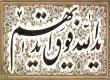 يد الله فوق ايديهم